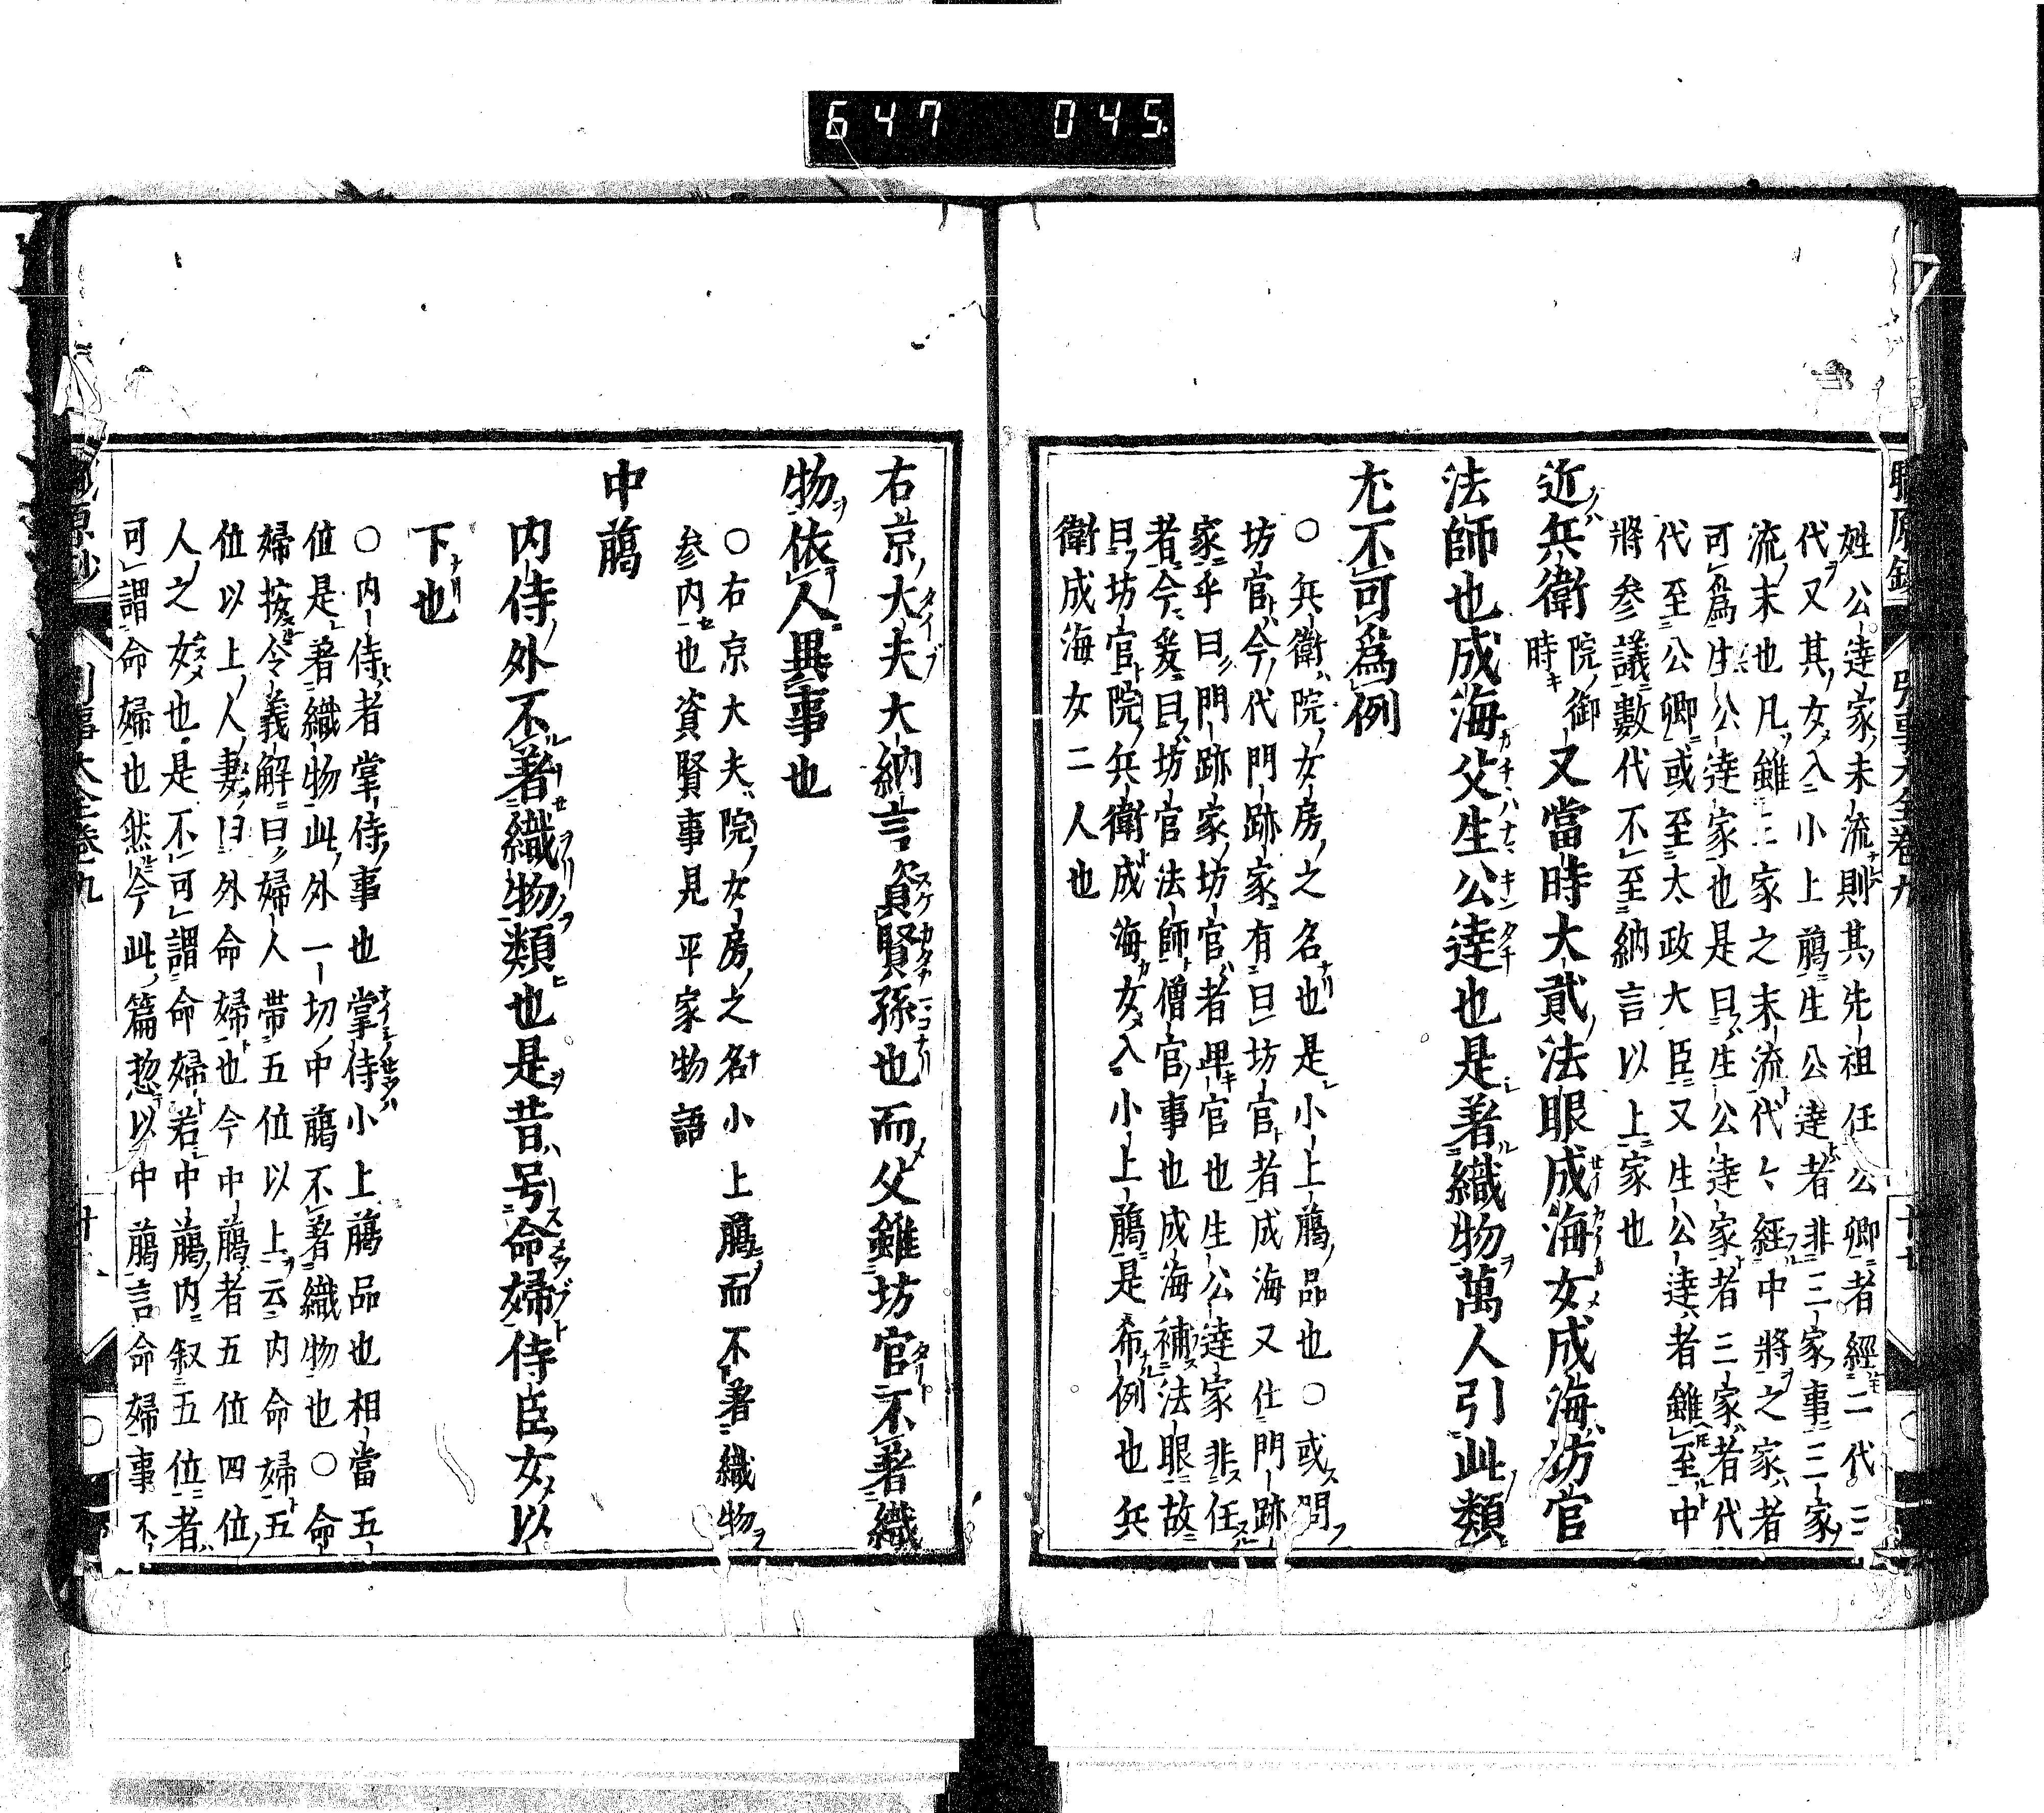 647 045
姓公達家末流則其先祖任公卿者經二代三
代又其女入小上﨟生公達者非三家事三家
流末也凡雖三家之末流代々經中將之家者
可爲生公達家也是曰生公達家者三家者代
代至公卿或至太政大臣又生公達者雖至中
將参議數代不至納言以上家也
近兵衛院御時又當時大貳法眼成海女成海坊官
法師也成海父生公達也是著織物萬人引此類
尤不可爲例
○兵衛院女房之名也是小上﨟品也○或問
坊官今代門跡家有曰坊官者成海又仕門跡
家乎曰門跡家坊官者卑官也生公達家非任
者今爰曰坊官法師僧官事也成海補法眼故
曰坊官院兵衛成海女入小上﨟是希例也兵
衛成海女二人也
右京大夫大納言資賢孫也而父雖坊官不著織
物依人異事也
○右京大夫院女房之名小上﨟而不著織物
参内也資賢事見平家物語
中﨟
内侍外不著織物類也是昔号命婦侍臣女以
下也
○内侍者掌侍事也掌侍小上﨟品也相當五
位是著織物此外一切中﨟不著織物也○命
婦按令義解曰婦人帶五位以上云内命婦五
位以上人妻曰外命婦也今中﨟者五位四位
人之女也是不可謂命婦若中﨟内叙五位者
可謂命婦也然今此篇惣以中﨟言命婦事不